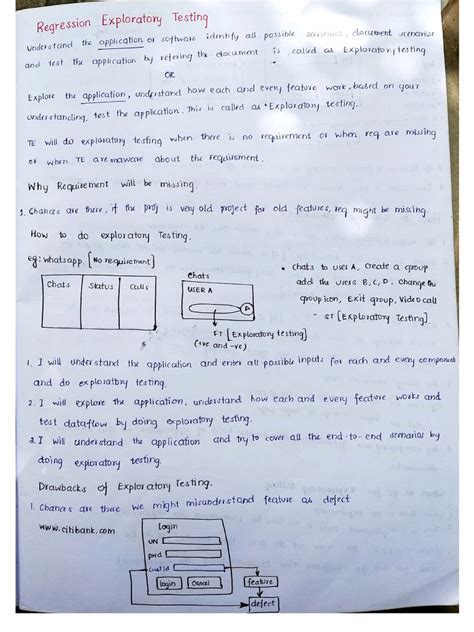 Regression Exploratory Testing
Understand the application or software identify all possible scenarios, document scenarios
and test the application by refering the document is called as Exploratory testing
OR
Explore the application, understand how each and every feature work, based on your
understanding, test the application. This is called as "Exploratory testing.
TE will do exploratory testing when there is no requirement or when req are missing
or when TE are unaware about the requirement.
Why Requirement will be missing.
1. Chances are there, if the proj is very old project for old features, req might be missing.
How to do exploratory Testing.
eg: whatsapp [No requirement]
Chats Status Calls
Chats
USER A
FT [Exploratory testing]
(+ve and -ve)
• chats to user A, create a group
add the users B, C, D, change the
group icon, Exit group, Video call
- ST [Exploratory Testing].
1. I will understand the application and enter all possible inputs for each and every components
and do exploratory testing.
2. I will explore the application, understand how each and every feature works and
test dataflow by doing exploratory testing.
3. I will understand the application and try to cover all the end-to-end scenarios by
doing exploratory testing.
Drawbacks of Exploratory testing.
1. Chances are there we might misunderstand feature as defect
www.citibank.com
Login
UN
pwd
Login Cancel
feature
defect